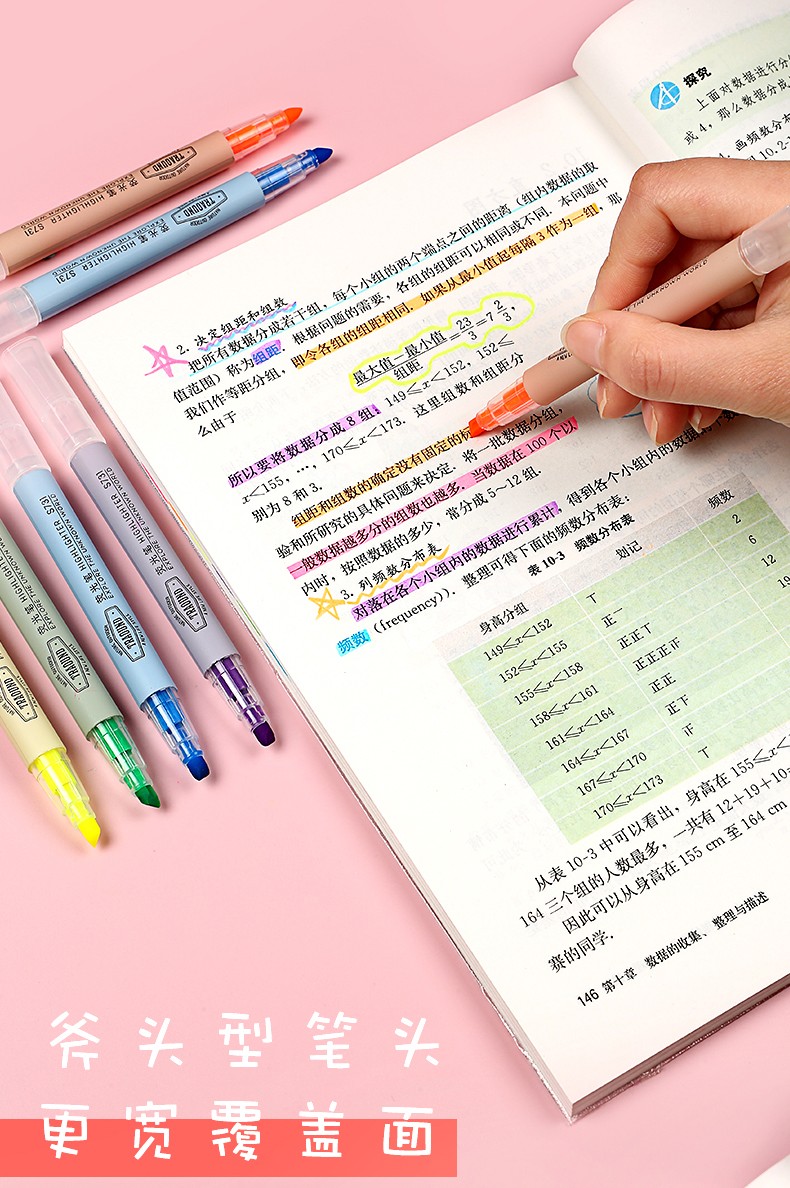 探究
上面对数据进行分
或 4，那么数据分成
画频数分布
2. 决定组距和组数
把所有数据分成若干组，每个小组的两个端点之间的距离（组内数据的取
值范围）称为组距. 根据问题的需要，各组的组距可以相同或不同. 本问题中
我们作等距分组，即令各组的组距相同. 如果从最小值起每隔 3 作为一组，那
么由于
最大值－最小值
组距
=23/3=7 2/3,
所以要将数据分成 8 组：149≤x<152，152≤
x<155，…，170≤x<173. 这里组数和组距分
别为 8 和 3.
组距和组数的确定没有固定的标
验和所研究的具体问题来决定. 将一批数据分组，
一般数据越多分的组数也越多. 当数据在 100 个以
内时，按照数据的多少，常分成 5～12 组.
3. 列频数分布表
对落在各个小组内的数据进行累计，得到各个小组内的数据的个数
频数（frequency）). 整理可得下面的频数分布表：
表 10-3 频数分布表
身高分组 划记 频数
149≤x<152 2
152≤x<155 正一 6
155≤x<158 正正丅 12
158≤x<161 正正正𤴓 19
161≤x<164 正正
164≤x<167 正下
167≤x<170
170≤x<173
从表 10-3 中可以看出，身高在 155≤x<
164 三个组的人数最多，一共有 12+19+10=
因此可以从身高在 155 cm 至 164 cm
赛的同学.
146 第十章 数据的收集、整理与描述
TRAOUND
荧光笔 HIGHLIGHTER S731
EXPLORE THE UNKNOWN WORLD
TRAOUND
荧光笔 HIGHLIGHTER S731
EXPLORE THE UNKNOWN WORLD
EXPLORE THE UNKNOWN WORLD
荧光笔 HIGHLIGHTER S731
EXPLORE THE UNKNOWN WORLD
TRAOUND
荧光笔 HIGHLIGHTER S731
EXPLORE THE UNKNOWN WORLD
TRAOUND
荧光笔 HIGHLIGHTER
TRAOUND
斧头型笔头
更宽覆盖面